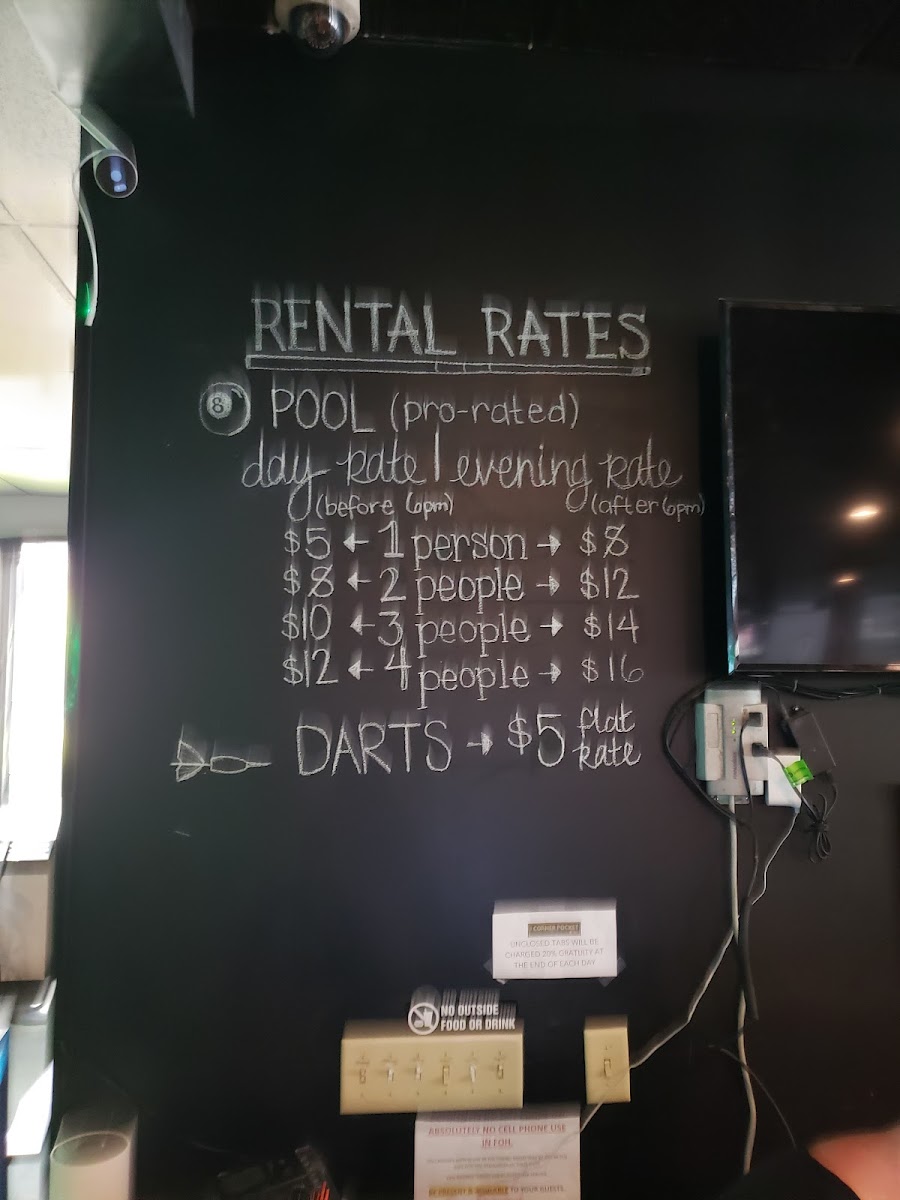 RENTAL RATES
8 POOL (pro-rated)
day rate | evening rate
(before 6pm) (after 6pm)
$5 ← 1 person → $8
$8 ← 2 people → $12
$10 ← 3 people → $14
$12 ← 4 people → $16
DARTS → $5 flat
rate
CORNER POCKET
UNCLOSED TABS WILL BE
CHARGED 20% GRATUITY AT
THE END OF EACH DAY
NO OUTSIDE
FOOD OR DRINK
ABSOLUTELY NO CELL PHONE USE
IN FOH.
TO YOUR GUESTS.